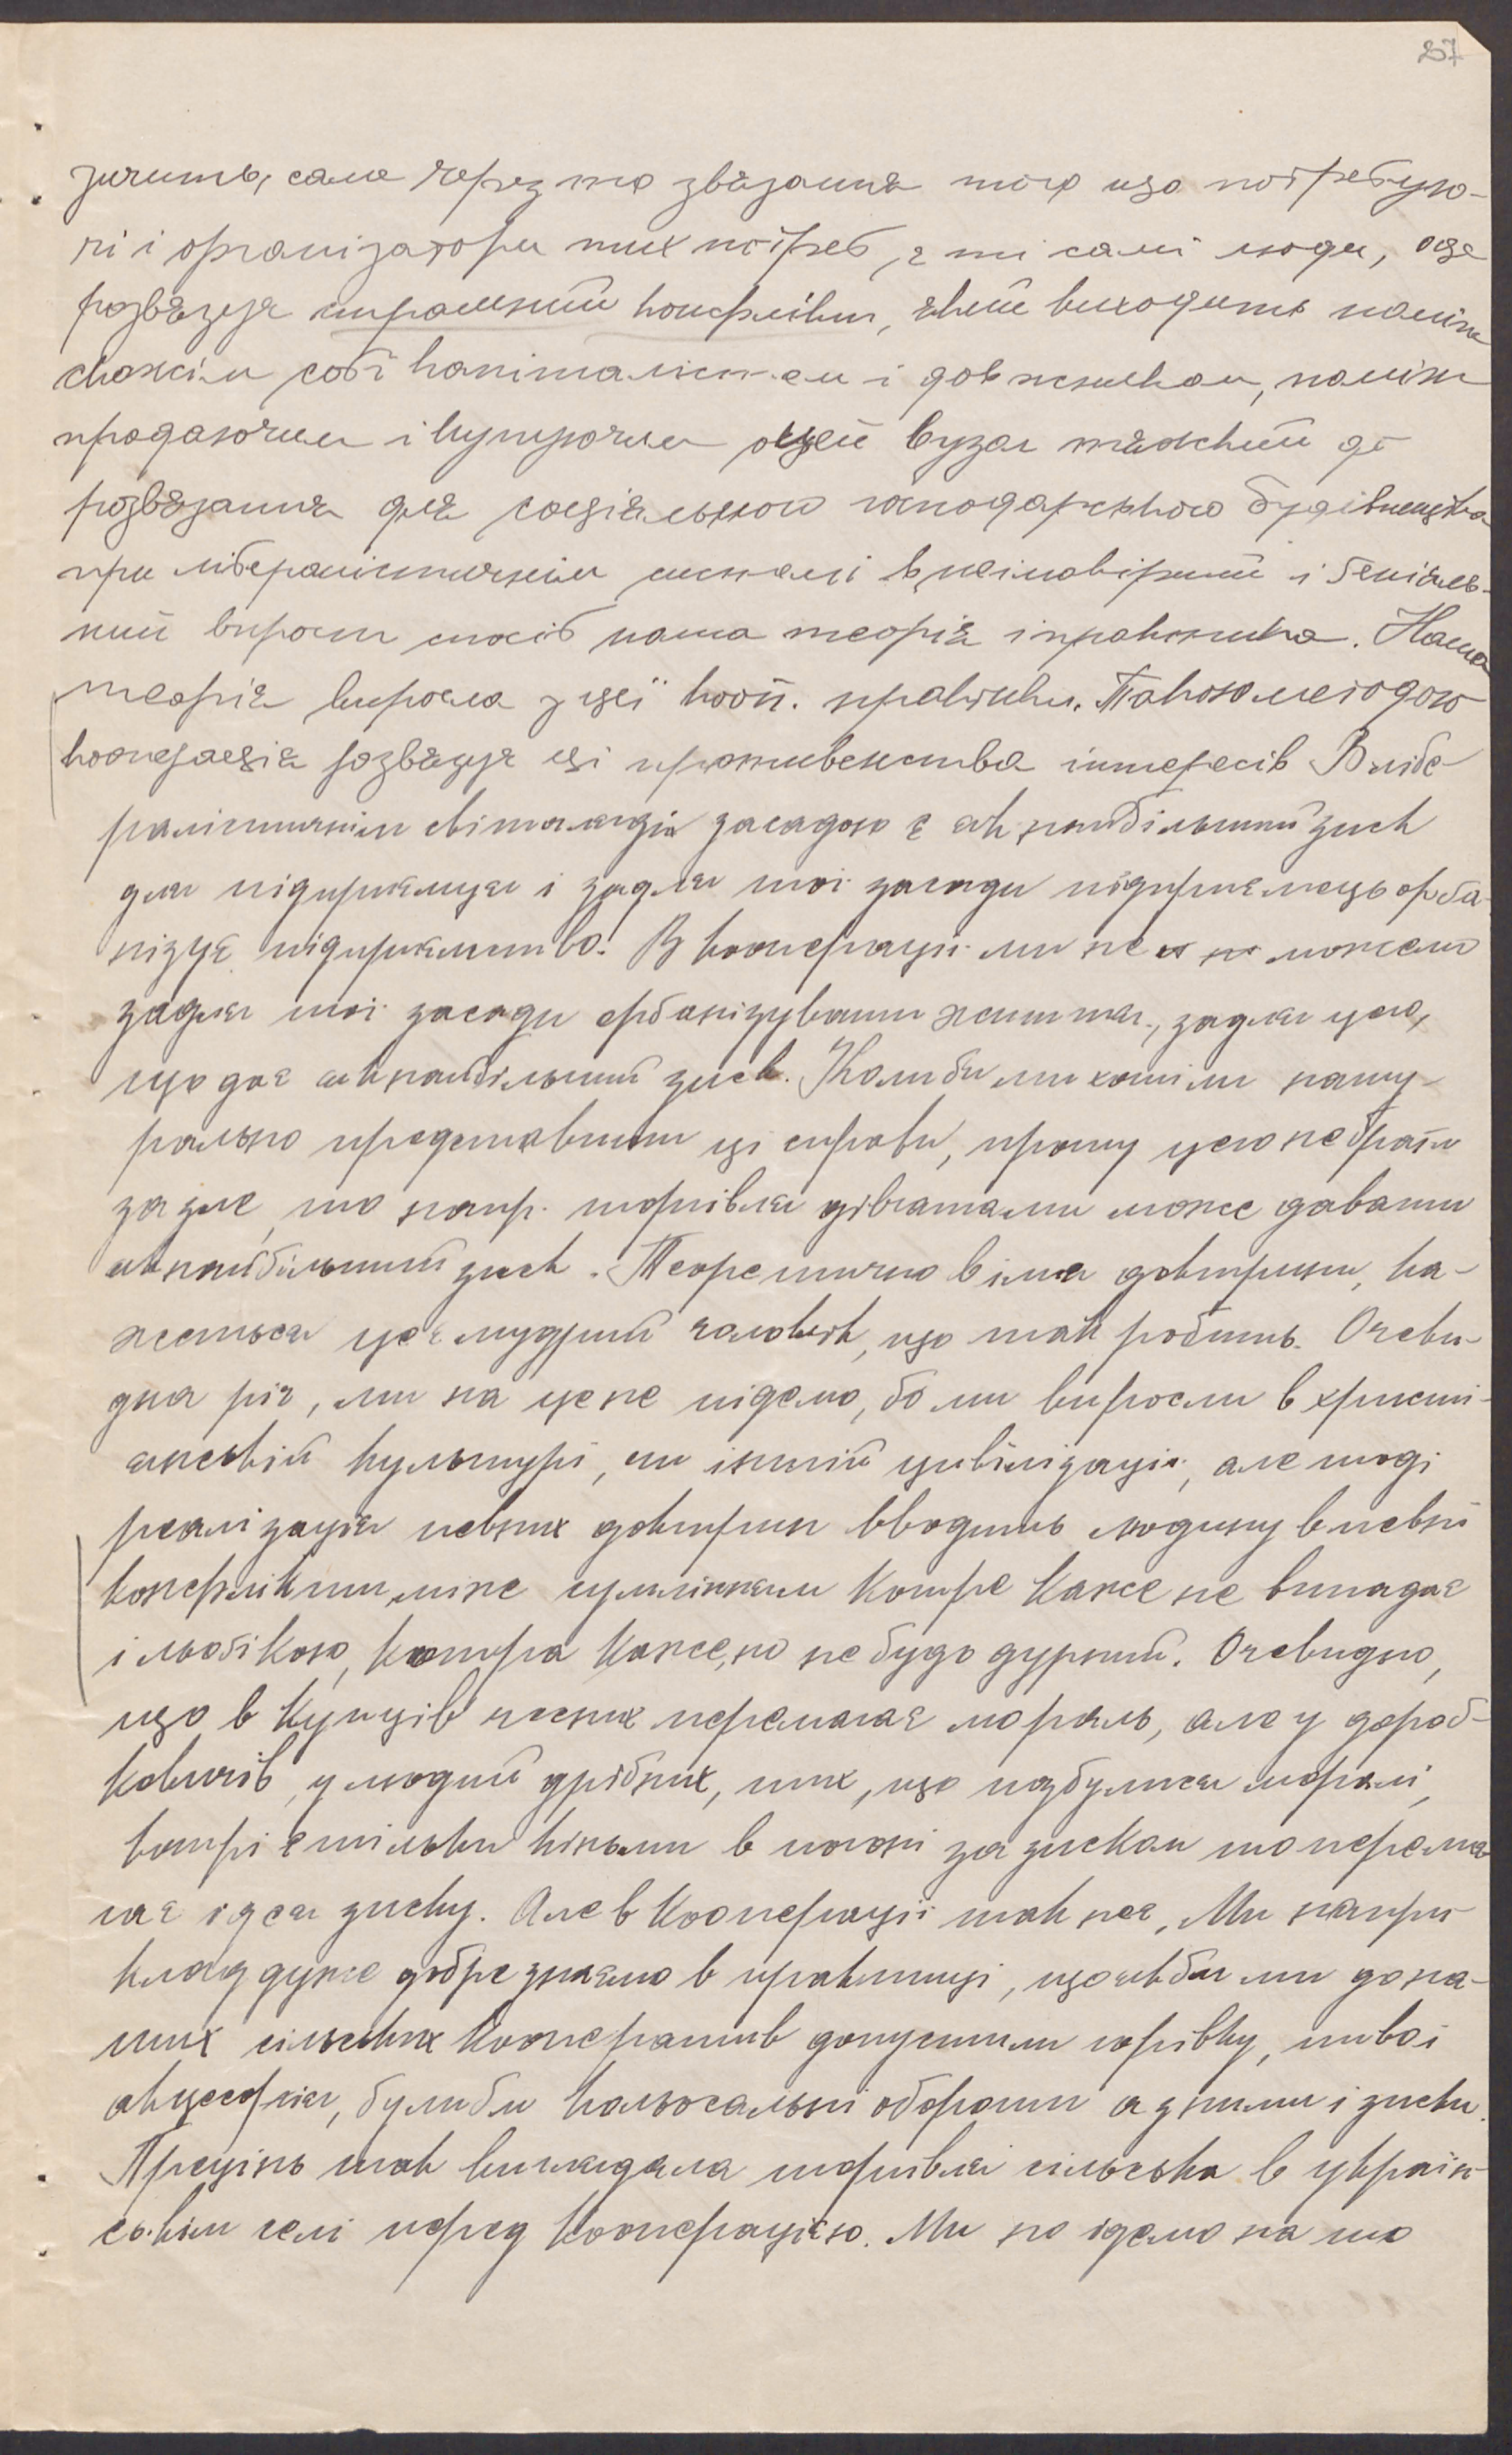 257
зичить, саме через то звязання того що потребую-
чі і організатори тих потреб, є ті самі люди, оце
розвязує страшний конфлікт, який виходить поміж
скажім собі капіталістом і довжником, поміж
продаючим і купуючим оцей вузол тяжкий до
розвязання для соціяльного господарського будівництва
при лібералістичнім системі в неімовірний і геніяль-
ний впрост спосіб наша теорія і практика. Наша
теорія виросла з цеї кооп. практики. Такою методою
кооперація розвязує ці противенства інтересів В лібе-
ралістичнім світогляді засадою є як найбільший зиск
для підприємця і задля тої засади підприємець орґа-
нізує підприємство. В кооперації ми не можемо
задля тої засади орґанізувати життя, задля цего,
що дає як найбільший зиск. Коли би ми хотіли нату-
рально представити ці справи, прошу цего не брати
за зле, то напр. торгівля дівчатами може давати
як найбільший зиск. Теоретично в імя доктрини, ка-
жеться це є мудрий чоловік, що так робить. Очеви-
дна річ, ми на це не підемо, бо ми виросли в христи-
янській культурі, чи іншій цивілізації, але тоді
реалізація певних доктрин вводить людину в певні
конфлікти, між сумлінням котре каже не випадає
і льоґікою, котра каже, но не будь дурний. Очевидно,
що в купців чесних перемагає мораль, але у дороб-
кевичів, у людий дрібних, тих, що позбулися моралі,
котрі є тільки кіньми в погоні за зиском то перема-
гає ідея зиску. Але в кооперації так не є, Ми напри-
клад дуже добре знаємо в практиці, що якби ми до на-
ших сільських кооператив допустили горівку, пиво і
акцесорія, були би кольосальні обороти а з ними і зиски.
Прецінь так виглядала торгівля сільська в україн-
ськім селі перед кооперацією. Ми не ідемо на то